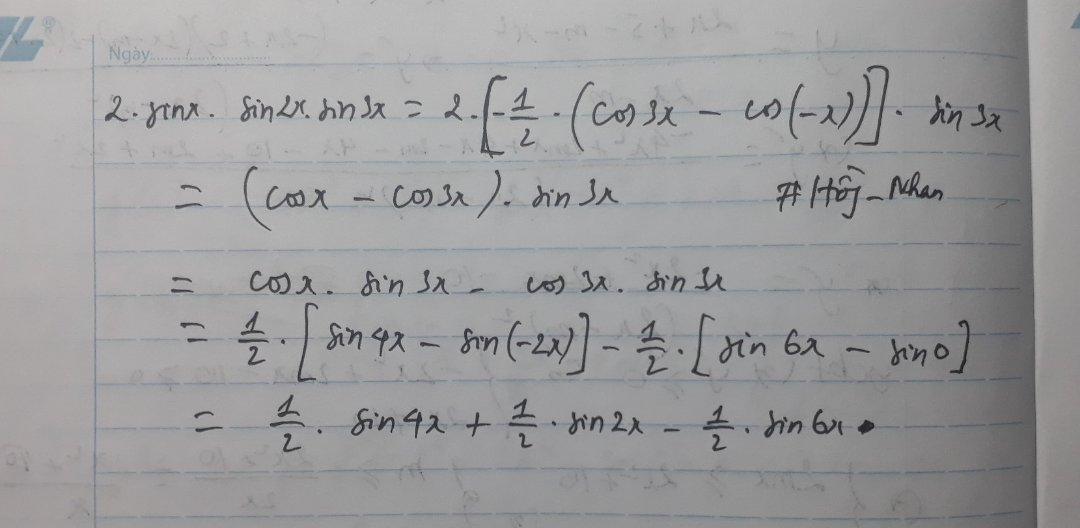 Ngày
2. sinx. sin2x. sin3x = 2. [-1/2 . (cos3x - cos(-x))]. sin3x
= (cosx - cos3x). sin3x #Hồng_Nhan
= cosx. sin3x - cos3x. sin3x
= 1/2 . [sin4x - sin(-2x)] - 1/2 . [sin6x - sin0]
= 1/2 . sin4x + 1/2 . sin2x - 1/2 . sin6x.